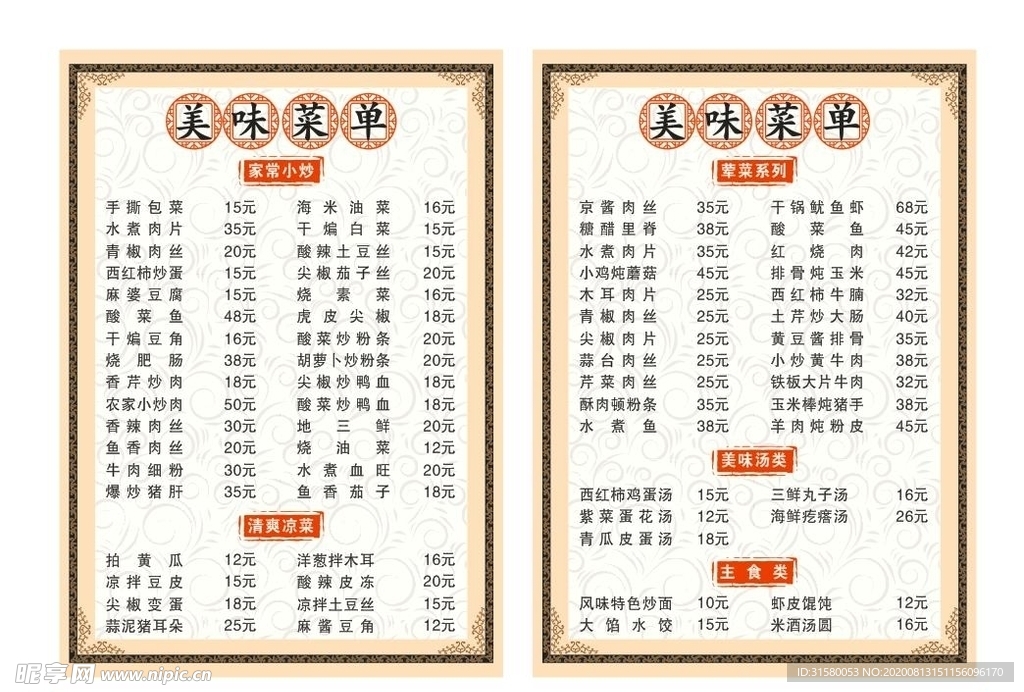 美味菜单
家常小炒
手撕包菜 15元 海米油菜 16元
水煮肉片 35元 干煸白菜 15元
青椒肉丝 20元 酸辣土豆丝 15元
西红柿炒蛋 15元 尖椒茄子丝 20元
麻婆豆腐 15元 烧素菜 16元
酸菜鱼 48元 虎皮尖椒 18元
干煸豆角 16元 酸菜炒粉条 20元
烧肥肠 38元 胡萝卜炒粉条 20元
香芹炒肉 18元 尖椒炒鸭血 18元
农家小炒肉 50元 酸菜炒鸭血 18元
香辣肉丝 30元 地三鲜 20元
鱼香肉丝 20元 烧油菜 12元
牛肉细粉 30元 水煮血旺 20元
爆炒猪肝 35元 鱼香茄子 18元
清爽凉菜
拍黄瓜 12元 洋葱拌木耳 16元
凉拌豆皮 15元 酸辣皮冻 20元
尖椒变蛋 18元 凉拌土豆丝 15元
蒜泥猪耳朵 25元 麻酱豆角 12元
美味菜单
荤菜系列
京酱肉丝 35元 干锅鱿鱼虾 68元
糖醋里脊 38元 酸菜鱼 45元
水煮肉片 35元 红烧肉 42元
小鸡炖蘑菇 45元 排骨炖玉米 45元
木耳肉片 25元 西红柿牛腩 32元
青椒肉丝 25元 土芹炒大肠 40元
尖椒肉片 25元 黄豆酱排骨 35元
蒜台肉丝 25元 小炒黄牛肉 38元
芹菜肉丝 25元 铁板大片牛肉 32元
酥肉顿粉条 35元 玉米棒炖猪手 38元
水煮鱼 38元 羊肉炖粉皮 45元
美味汤类
西红柿鸡蛋汤 15元 三鲜丸子汤 16元
紫菜蛋花汤 12元 海鲜疙瘩汤 26元
青瓜皮蛋汤 18元
主食类
风味特色炒面 10元 虾皮馄饨 12元
大馅水饺 15元 米酒汤圆 16元
昵享网 www.nipic.cn
ID:31580053 NO:20200813151156096170